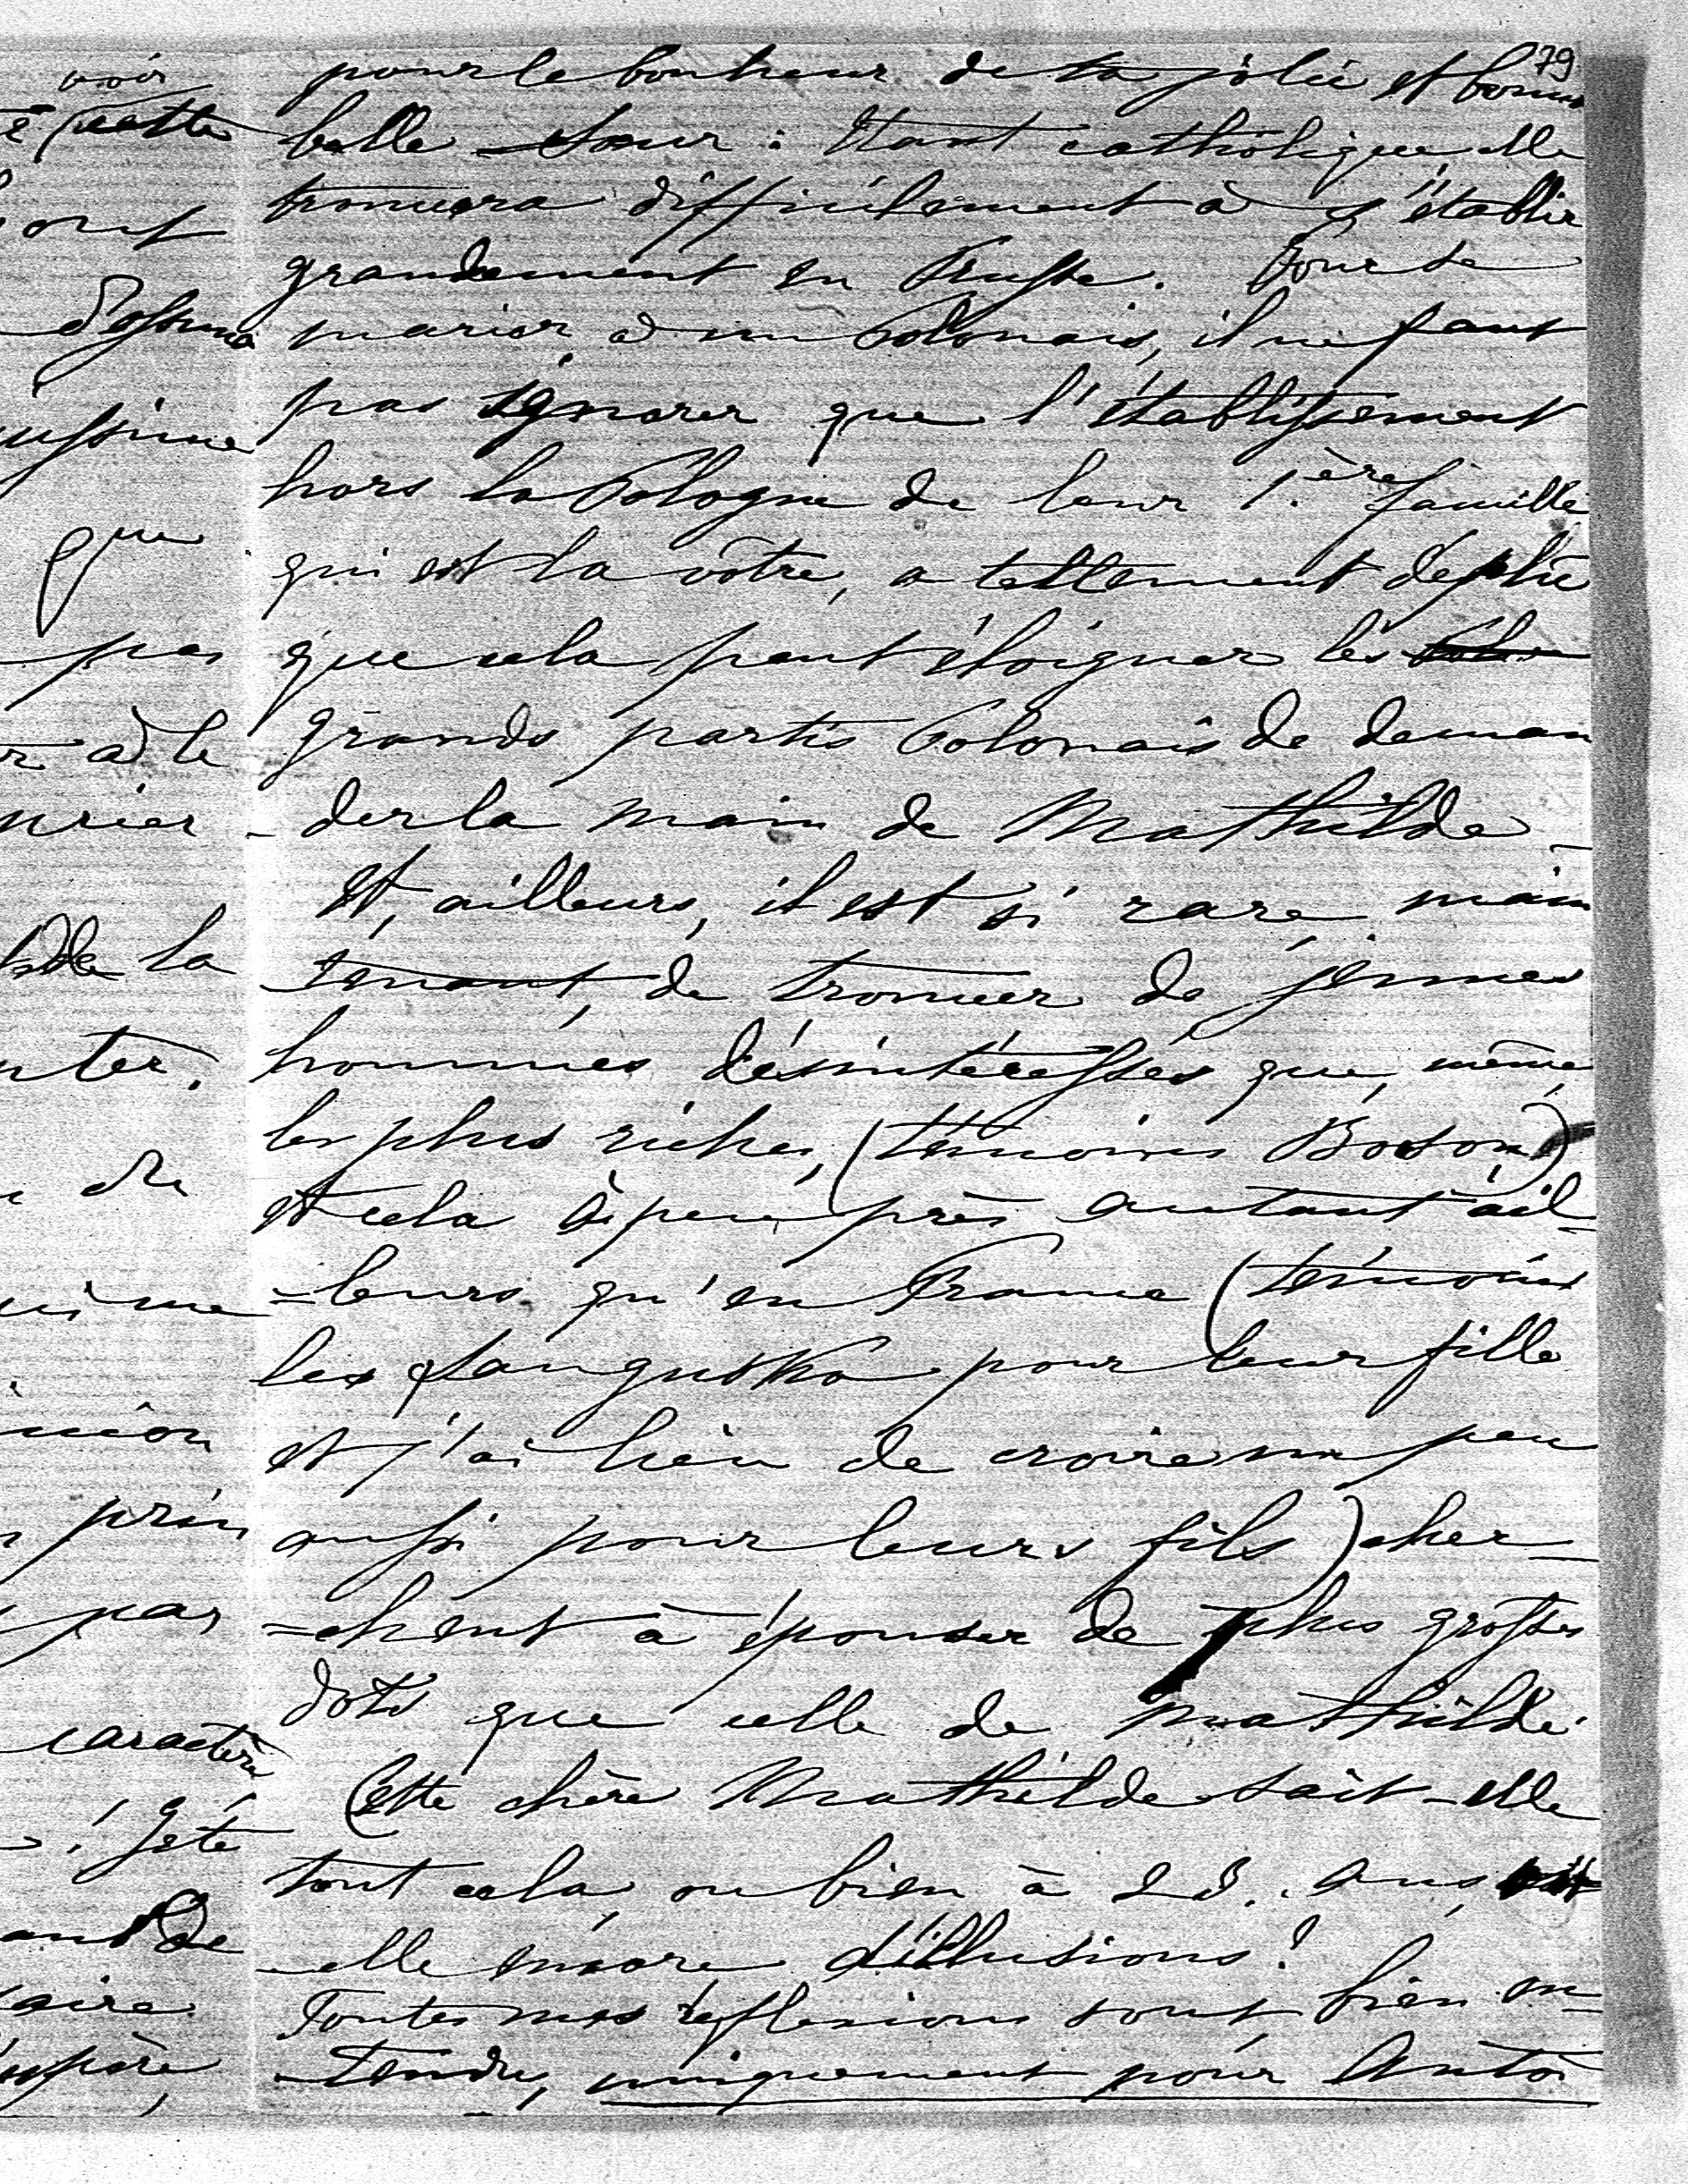 79
pour le bonheur de ta jolie et bonne
belle Sœur : Etant catholique, elle
trouvera difficilement à s'établir
grandement en Prusse. Pour se
marier à un Polonais, il ne faut
pas ignorer que l'établissement
hors la Pologne de leur 1.ère famille
qui est la vôtre, a tellement déplu
que cela peut éloigner les
grands partis Polonais de deman
- der la main de Mathilde.
Et, ailleurs, il est si rare main
tenant, de trouver de jeunes
hommes désintéressés que, même,
les plus riches, (témoins Boson)
et cela à peu près autant ail-
=leurs qu'en France (témoins
les Sangusko pour leur fille
et j'ai lieu de croire un peu
aussi pour leurs fils) cher-
=chent à épouser de plus grosses
dots que celle de Mathilde.
Cette chère Mathilde sait-elle
tout cela, ou bien à 23. ans,
-elle encore d'illusions?
Toutes mes réflexions sont bien en-
-tendu, uniquement pour Anto
voir
cette
ont
que
pas
à le
la
du
prin
pas
caractère
! Jeté